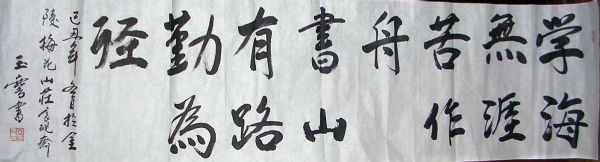 学海
無涯
苦作
舟
書山
有路
勤為
径
己丑年冬月於金
陵梅花山莊硯齋
玉書